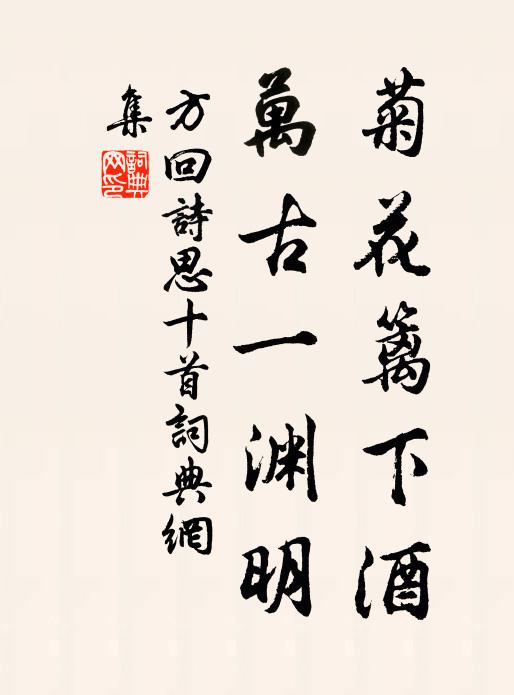 菊花籬下酒
萬古一渊明
方回詩思十首詞典網
集
詞典网印